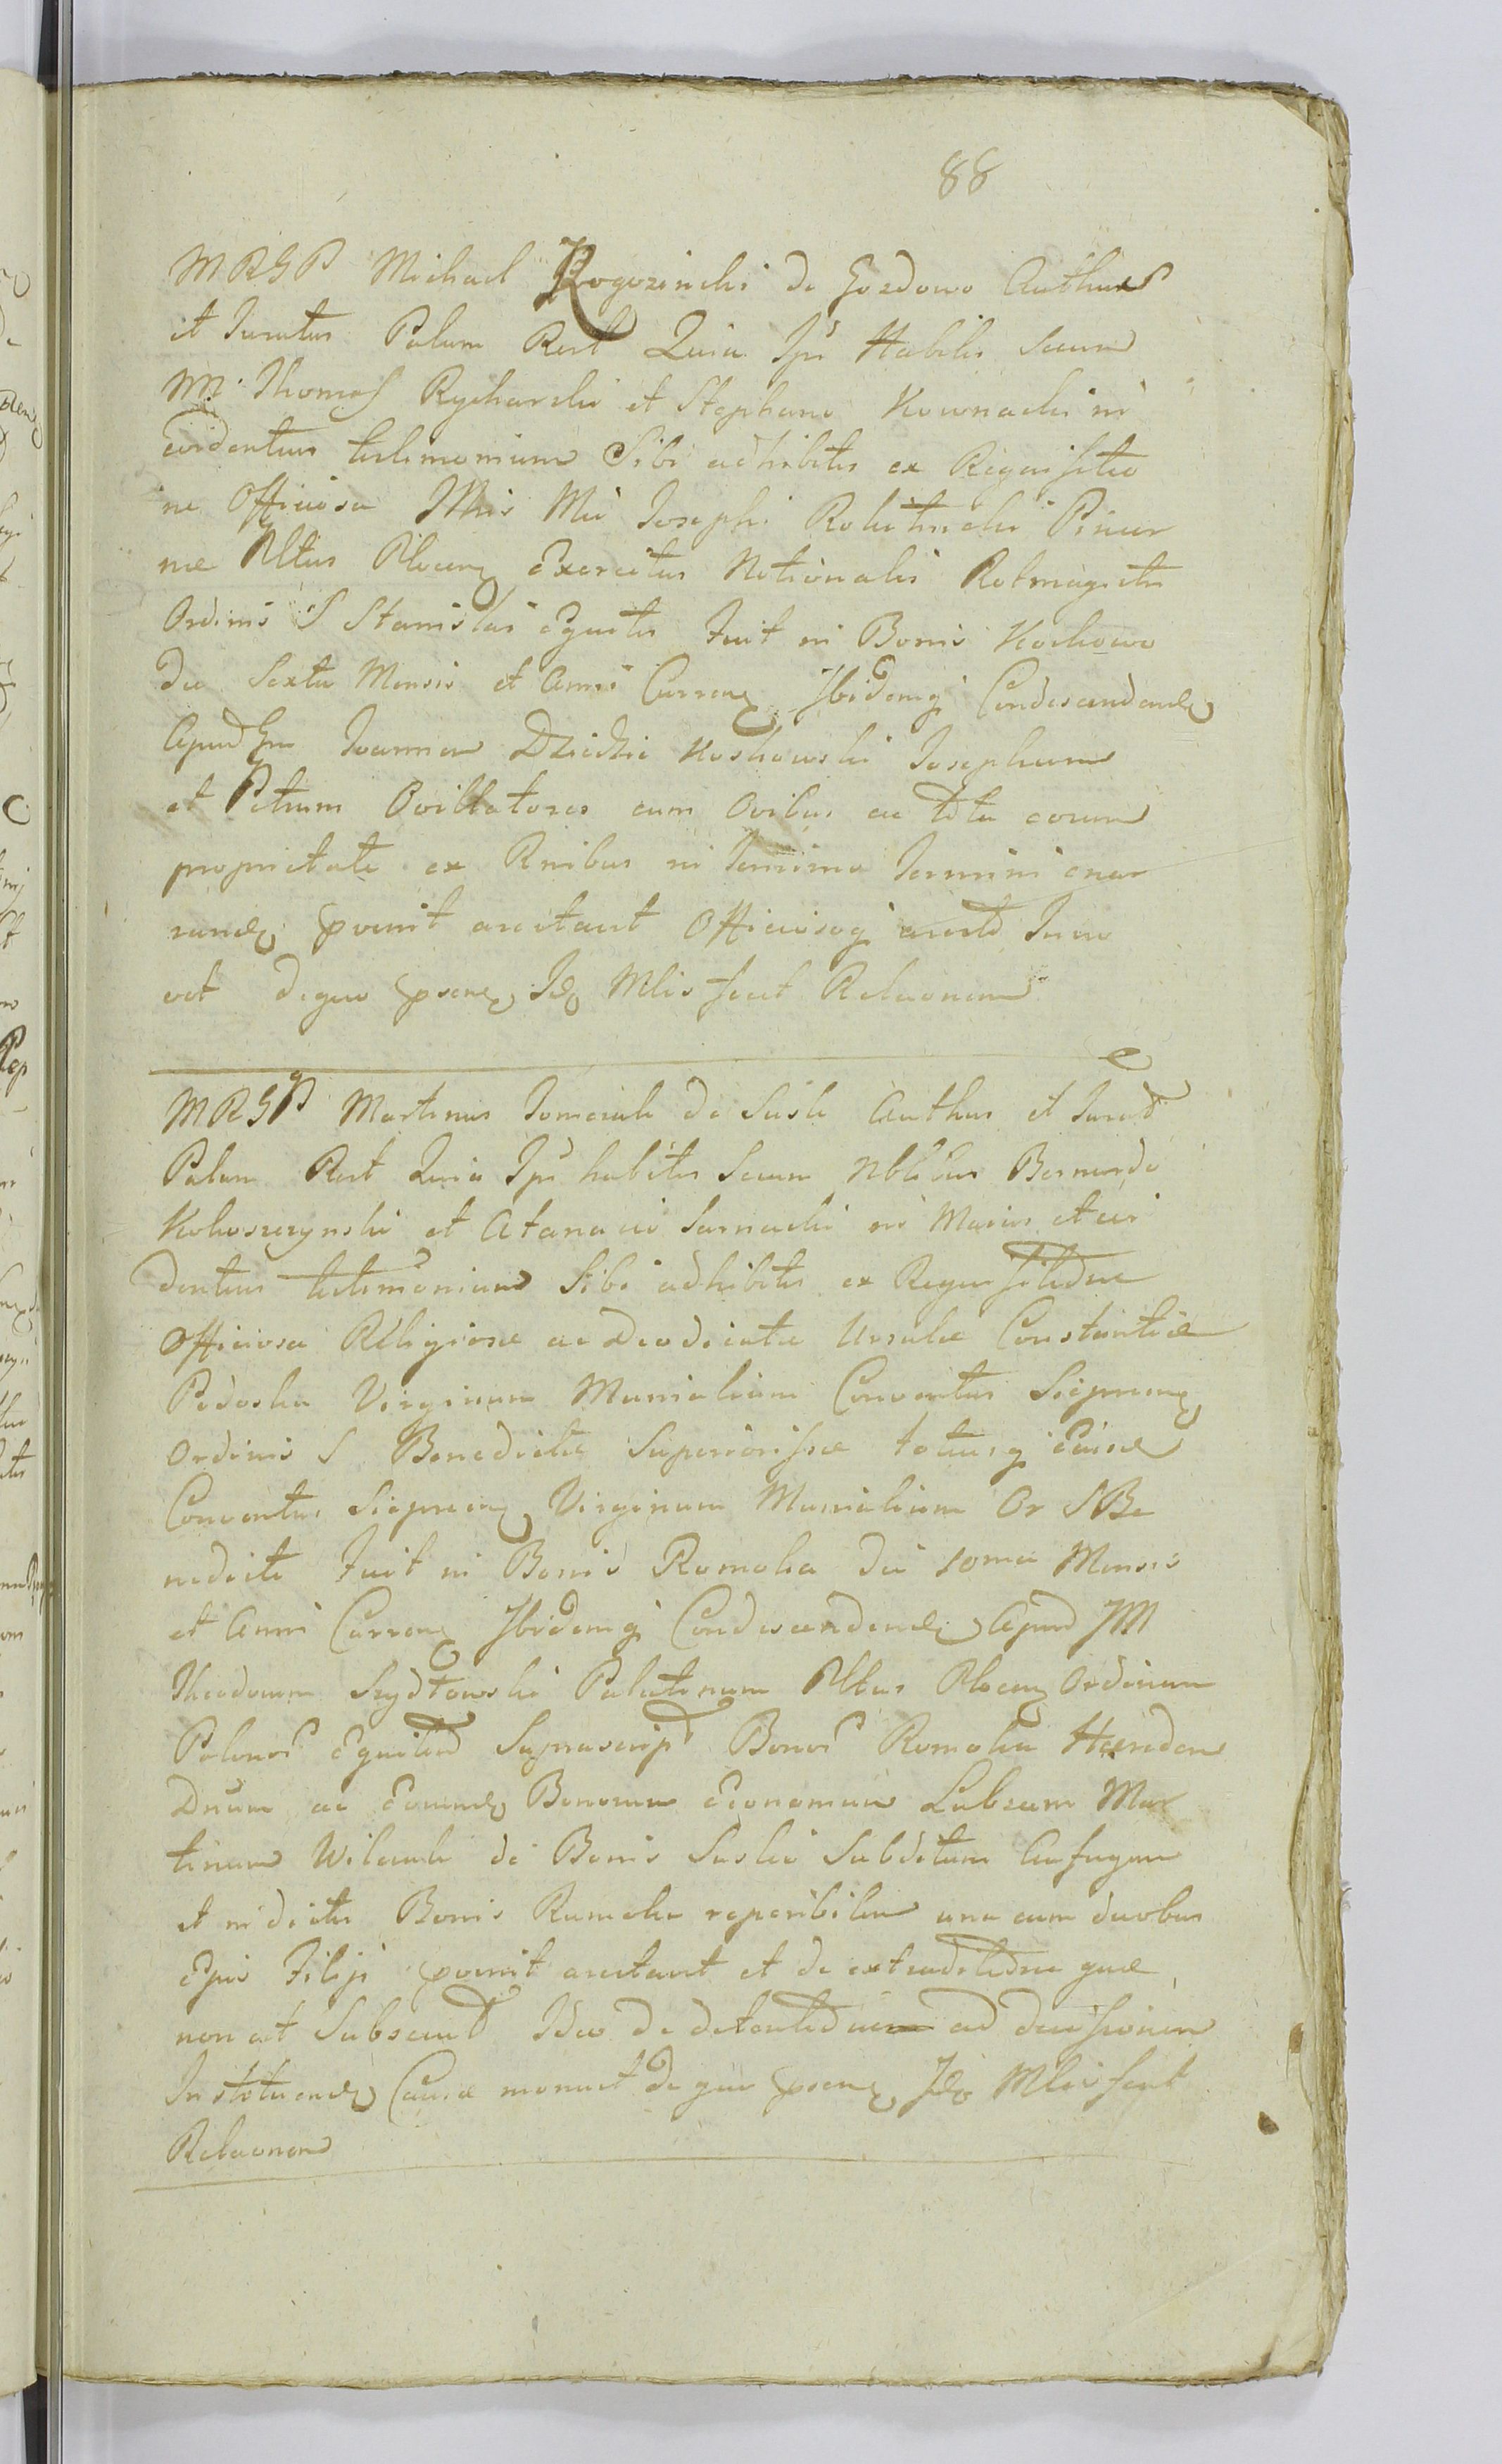 88
MRGP Michael Rogozinski de Gozdowo Authus
et Juratus Palam Rect Quia Ips Habitis Secum
MM Thomas Rycharski et Stephano Kownacki in
evidentius testimonium Sibi adhibitis ex Requisitio
ne Officiosa Mfis Mci Josephi Rokitnicki Pincer
nae Pltus Plocen Exercitus Nationalis Rotmagistri
Ordinis S Stanislai Equitis Fuit in Bonis Koskowo
die Sexta Mensis et Anni Curren Ibidemq Condescenden
Apud Gn Joannem Dziedzic Koskowski Josephum
et Petrum Ovillatores cum Ovibus ac tota eorum
proprietate ex Rnibus in Termino Termini enar
rand pvenit arestavit Officioseq arestd Inno
vit dequo psens Ids Mlis fecit Relaonem
MRGP Martinus Tomczak de Susk Authus et Jurat
Palam Rect Quia Ips habitis Secum Nblibus Bernardo
Kokoszczynski et Atanacio Sarnacki in Maius et evi
dentius testimonium Sibi adhibitis ex Requisitione
Officiosa Religiosae ac Deodicatae Ursulae Constantiae
Podoska Virginum Monialium Conventus Sieprcen
Ordinis S Benedicti Superiorissae totiusq Eiusd
Conventus Sieprcen Virginum Monialium Or S Be
nedicti Fuit in Bonis Romoka die 10ma Mensis
et Anni Curren Ibidemq Condescenden Apud JM
Theodorum Szydłowski Palatinum Pltus Plocen Ordinum
Polonor Equitem Suprascript Bonor Romoka Haeredem
Dnum ac Eorund Bonorum Economum Labeum Mar
tinum Wilczak de Bonis Suskie Subditum Aufugum
et in dictis Bonis Rumoka reperibilem una cum duobus
Ejus Filiji pvenit arestavit et de extraditione quae
non est Subsecuta Ideo de detentione ad decisionem
Instituend Causae monuit de quo psens Ids Mlis fecit
Relaonem